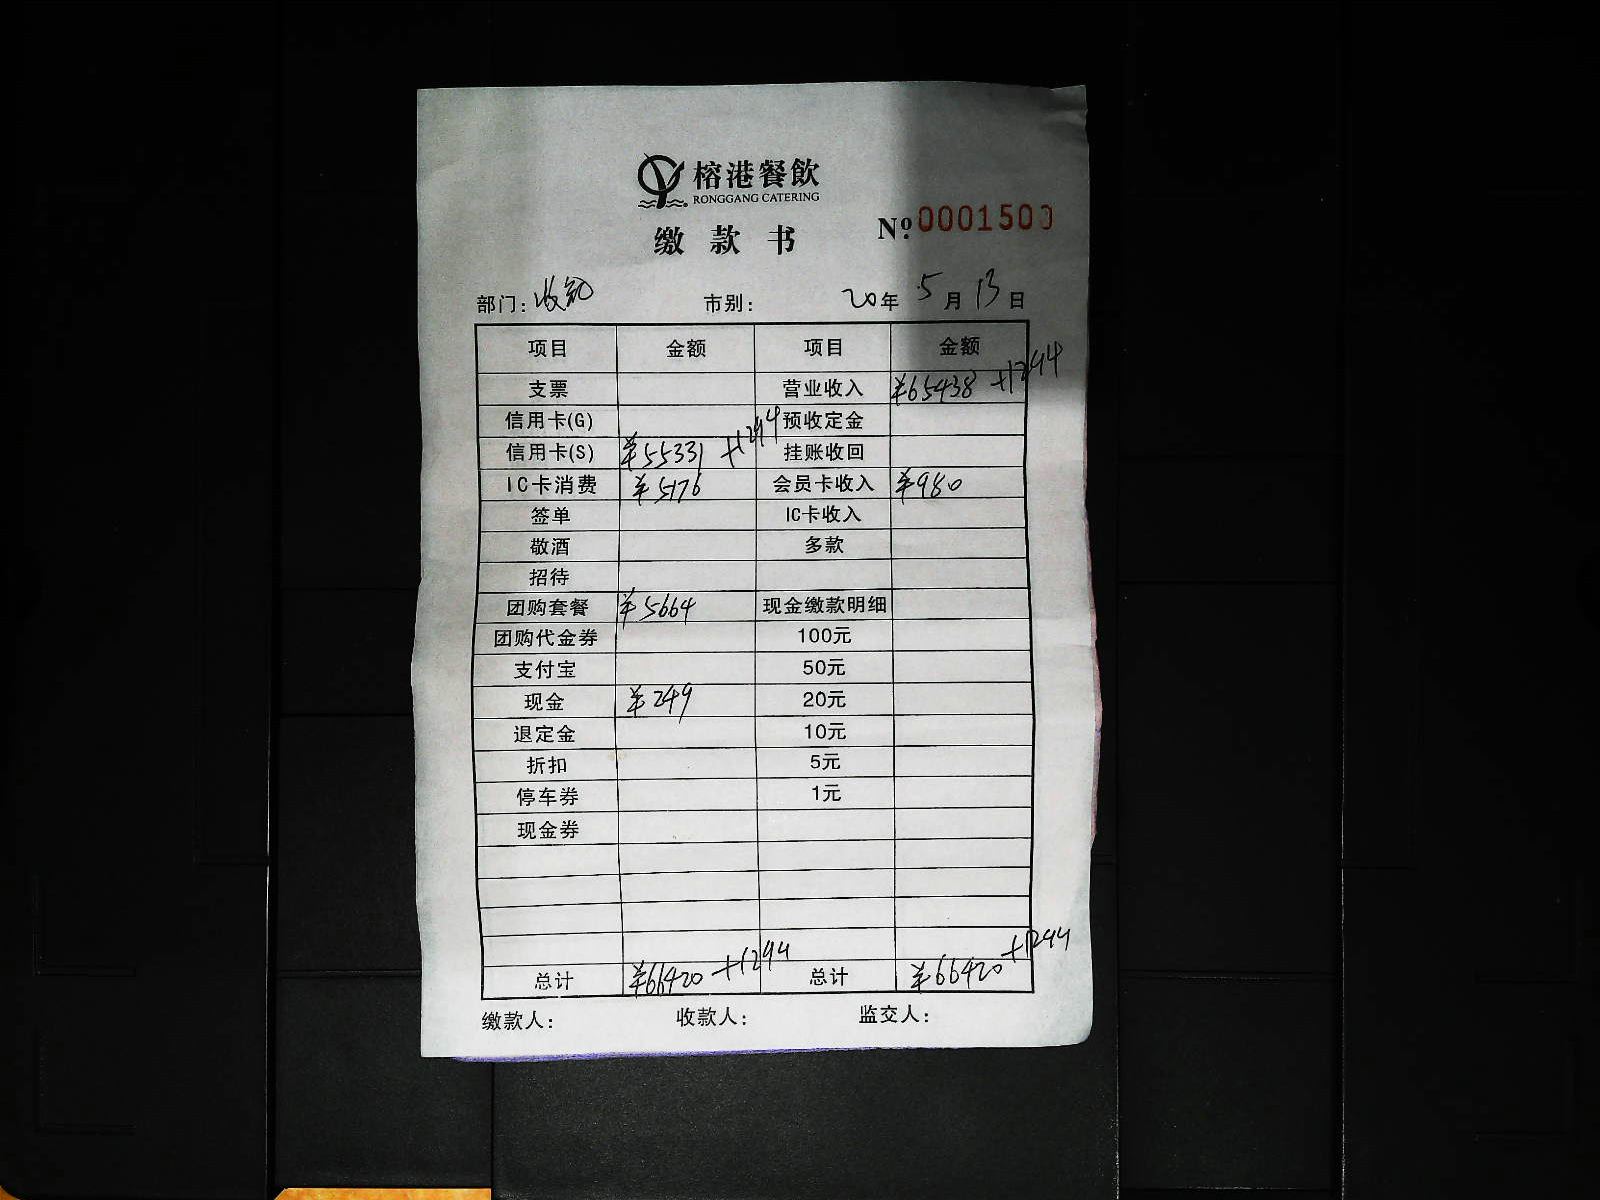 榕港餐飲
RONGGANG CATERING
缴款书 Nº:0001500
部门: 收银 市别: 20年 5月 13日
项目 金额 项目 金额
支票 营业收入 ¥65438 +1294
信用卡(G) 预收定金
信用卡(S) ¥55331 +1294 挂账收回
IC卡消费 ¥5176 会员卡收入 ¥980
签单 IC卡收入
敬酒 多款
招待
团购套餐 ¥5664 现金缴款明细
团购代金券 100元
支付宝 50元
现金 ¥249 20元
退定金 10元
折扣 5元
停车券 1元
现金券
总计 ¥66420 +1294 总计 ¥66420 +1294
缴款人: 收款人: 监交人: